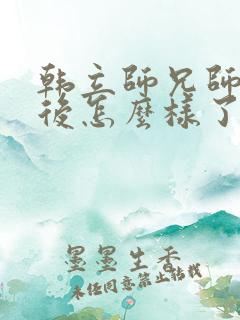 韩立师兄师
後怎麽樣了
墨墨生香
未经同意禁止转载